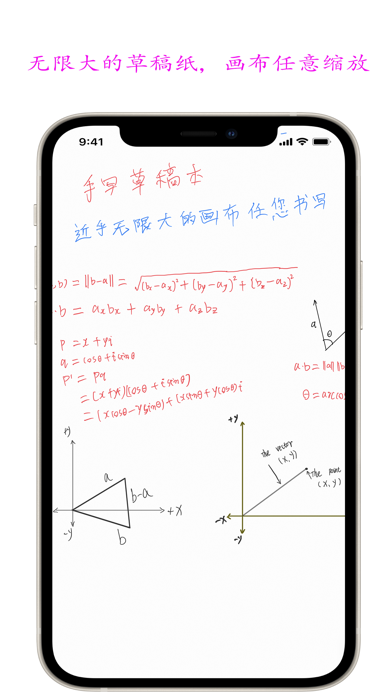 无限大的草稿纸，画布任意缩放
9:41
手写草稿本
近乎无限大的画布任您书写
,b) = ||b-a|| = √(bₓ-aₓ)²+(by-ay)²+(bz-az)²
·b = aₓbₓ + ayby + azbz
a
θ
p = x + yi
q = cosθ + i sinθ
p' = pq
= (x+yi)(cosθ + i sinθ)
= (x cosθ - y sinθ) + (x sinθ + y cosθ) i
a·b = ||a|| ||b
θ = arccos
+y
a
b-a
b
+x
-y
+y
the vector
(x,y)
the point
(x,y)
-x
-y